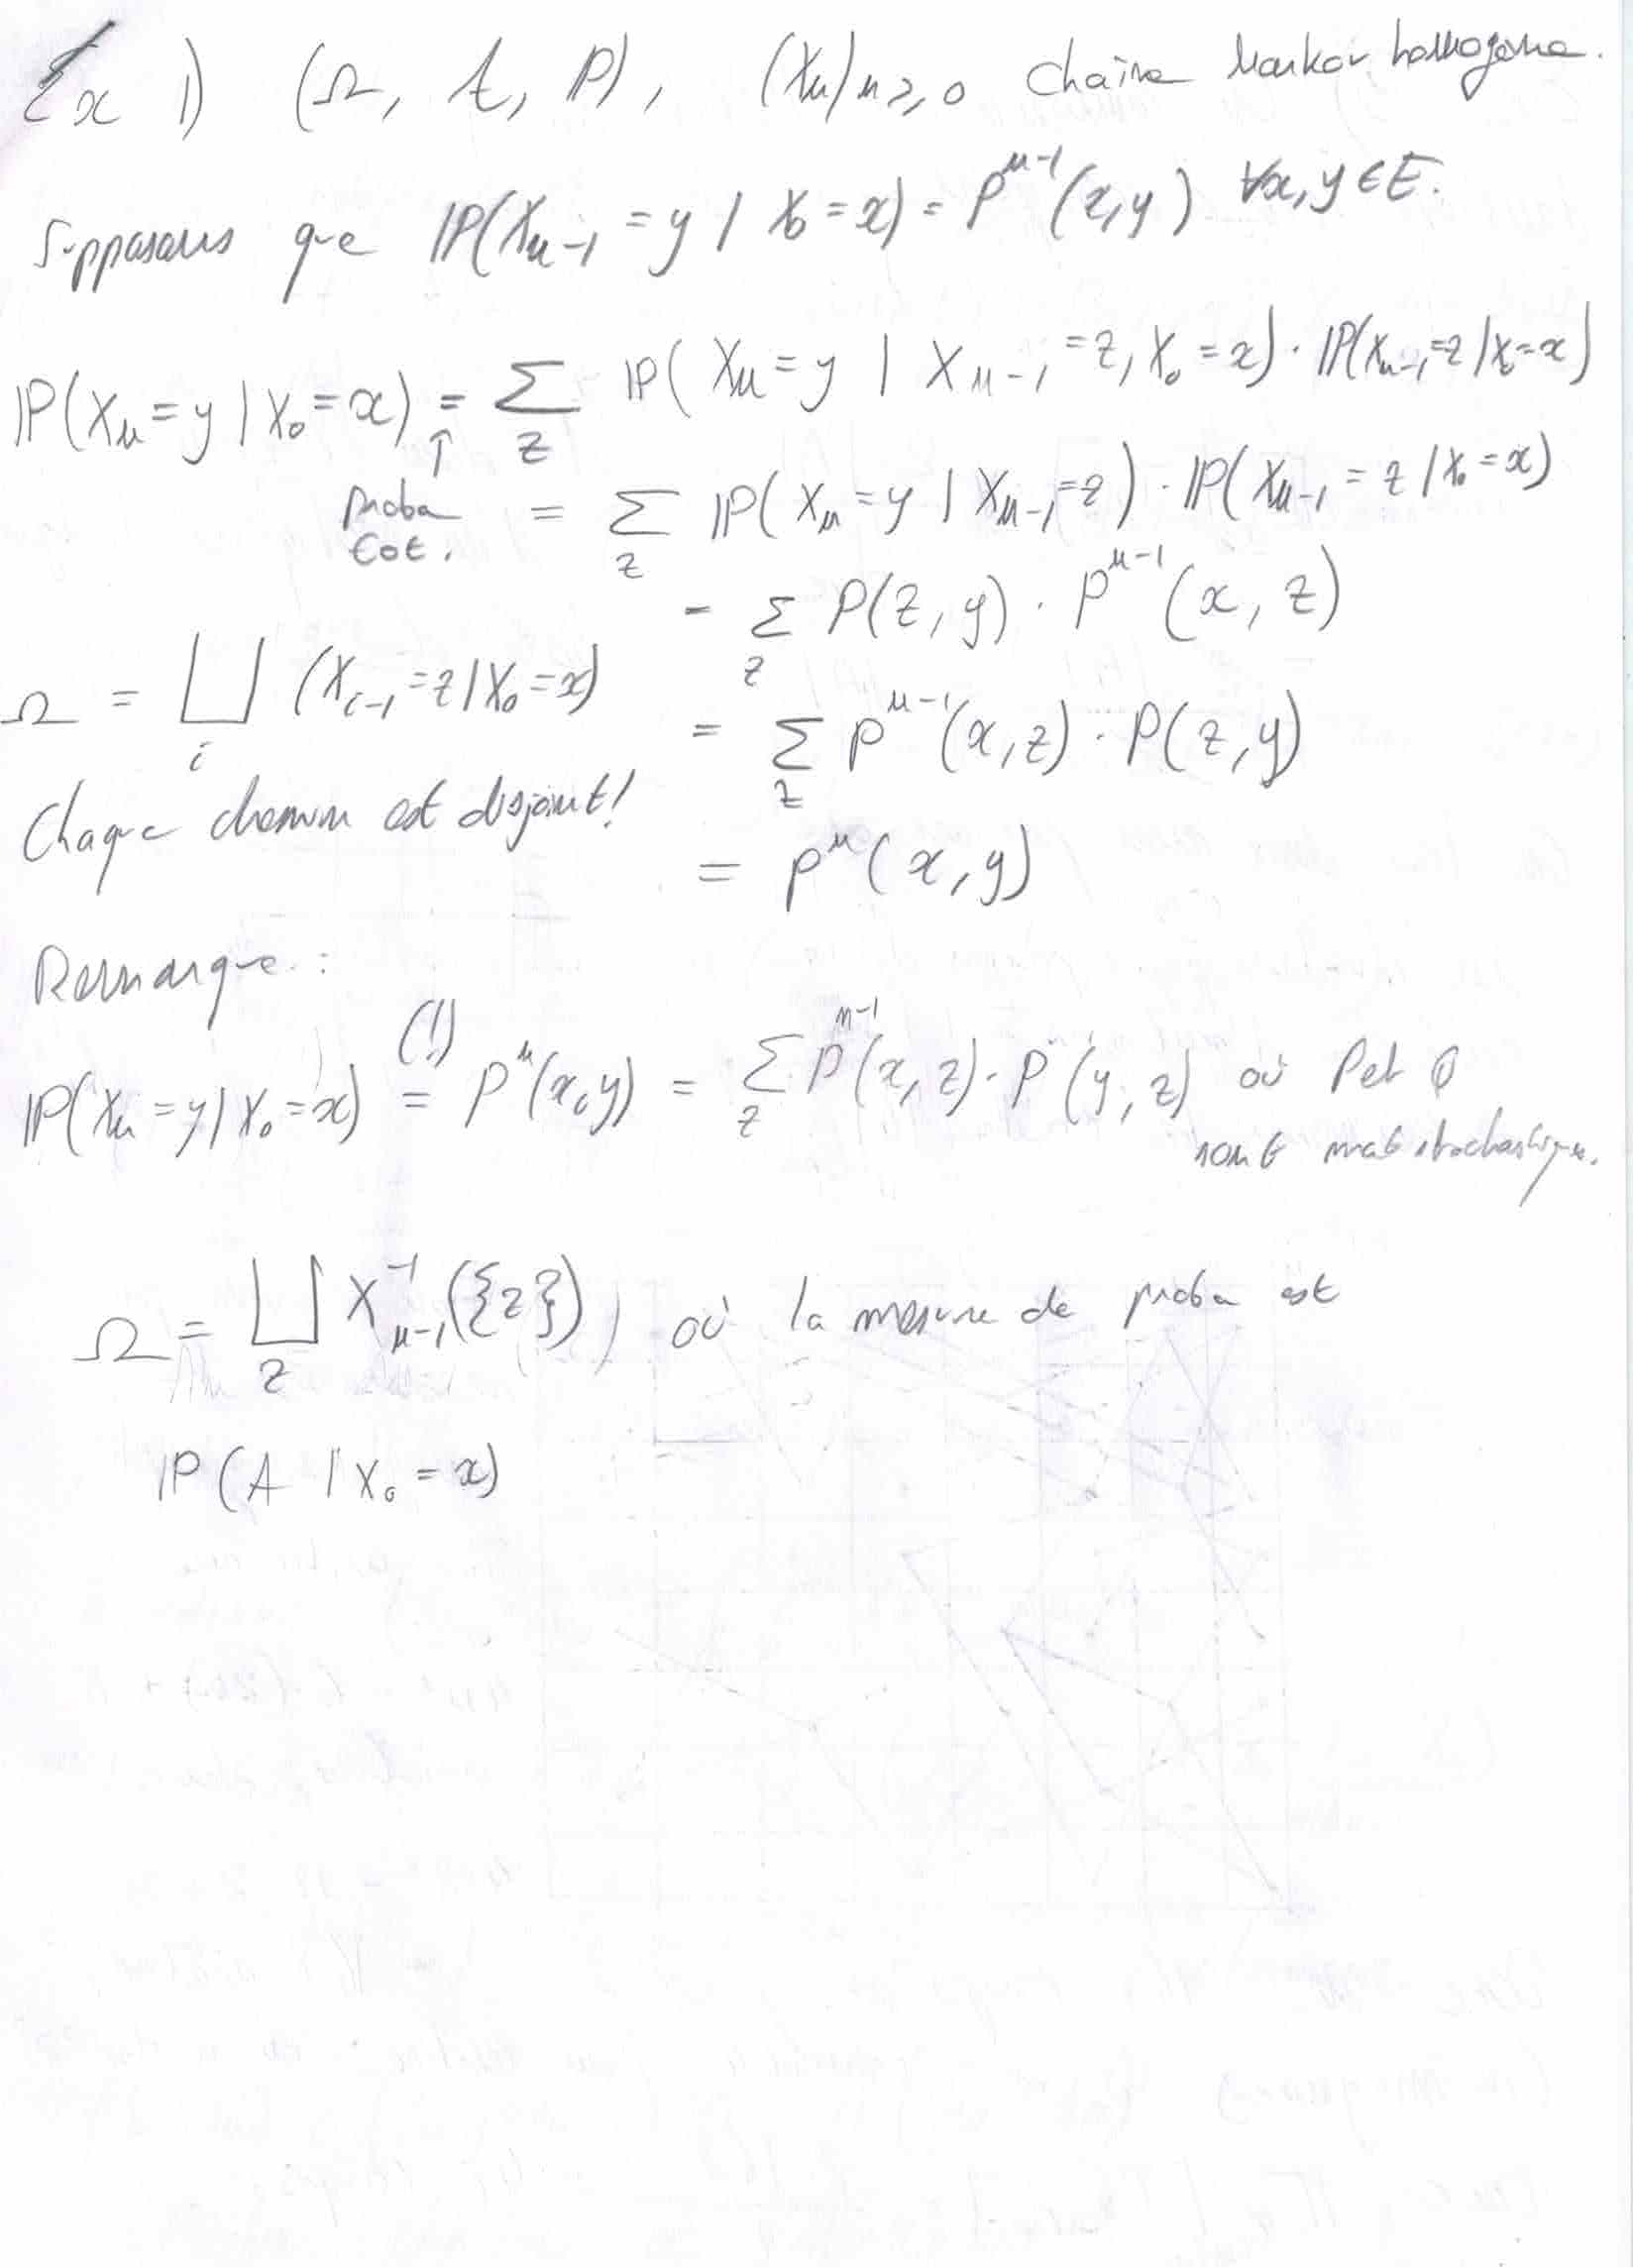 Ex 1) (Ω, A, P), (Xn)n≥0 chaîne Markov homogène.
Supposons que ℙ(Xn-1 = y | X0 = x) = P^{n-1}(x,y) ∀x,y ∈ E.
ℙ(Xn = y | X0 = x) = Σ_z ℙ(Xn = y | Xn-1 = z, X0 = x) · ℙ(Xn-1 = z | X0 = x)
↑ proba tot.
= Σ_z ℙ(Xn = y | Xn-1 = z) · ℙ(Xn-1 = z | X0 = x)
= Σ_z P(z,y) · P^{n-1}(x,z)
Ω = ⊔_i (Xi-1 = z | X0 = x)
= Σ_z P^{n-1}(x,z) · P(z,y)
Chaque chemin est disjoint!
= P^n(x,y)
Remarque :
ℙ(Xn = y | X0 = x) (!) = P^n(x,y) = Σ_z P^{n-1}(x,z) · P(y,z) où P et Q
sont mat stochastique.
Ω = ⊔_z X_{n-1}^{-1}({z}) où la mesure de proba est
ℙ(A | X0 = x)